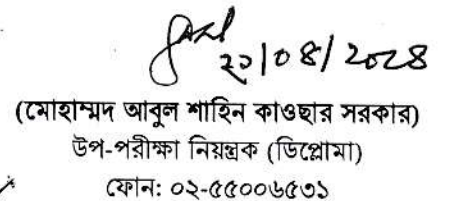 ২১/০৪/২০২৪
(মোহাম্মদ আবুল শাহিন কাওছার সরকার)
উপ-পরীক্ষা নিয়ন্ত্রক (ডিপ্লোমা)
ফোন: ০২-৫৫০০৬৫৩১